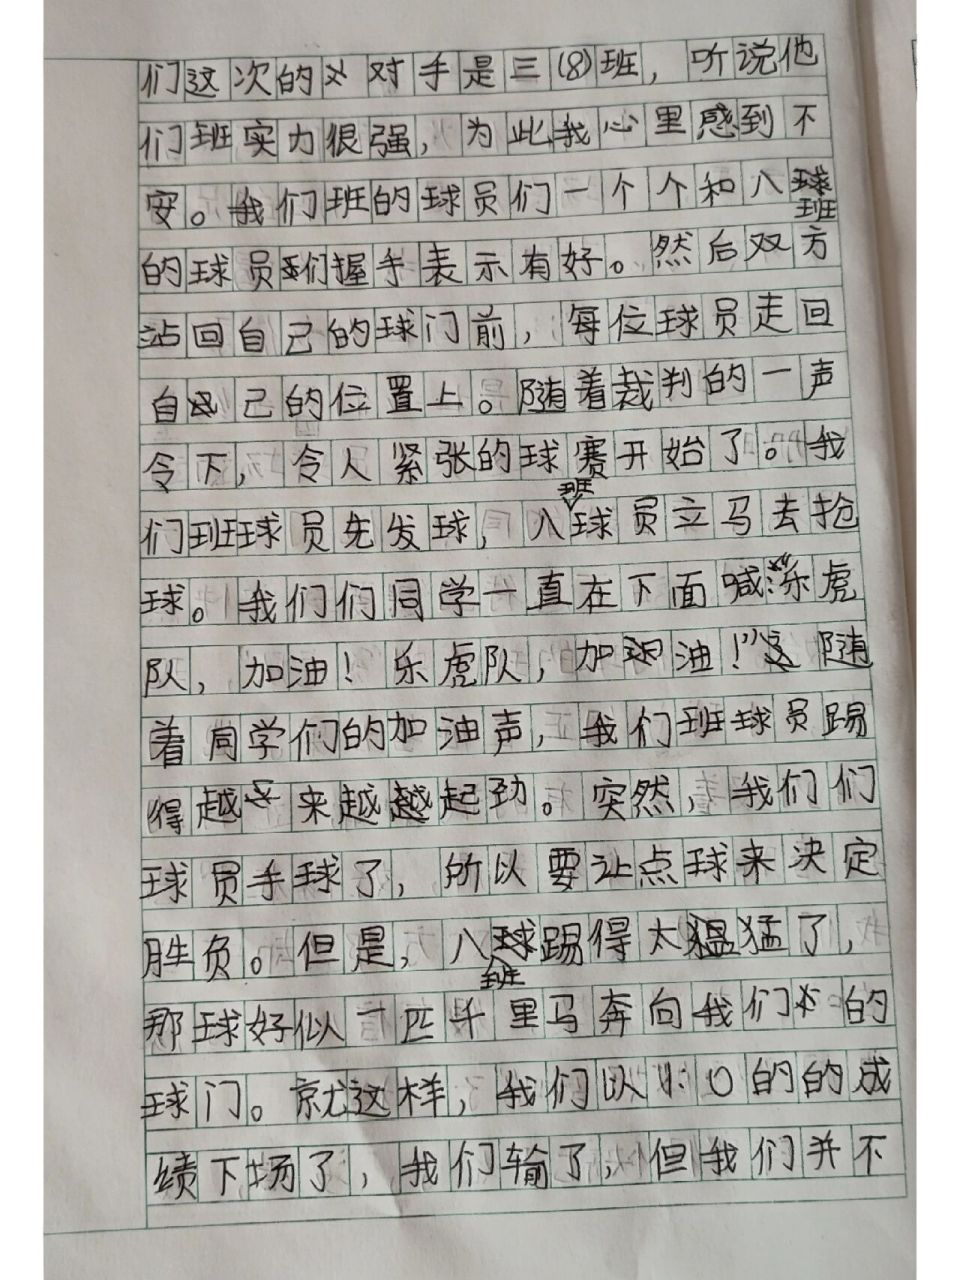 们这次的对手是三(8)班，听说他
们班实力很强，为此我心里感到不
安。我们班的球员们一个个和八班
的球员们握手表示有好。然后双方
沾回自己的球门前，每位球员走回
自己的位置上。随着裁判的一声
令下，令人紧张的球赛开始了。我
们班球员先发球，八班球员立马去抢
球。我们们同学一直在下面喊：“乐虎
队，加油！乐虎队，加油！”随
着同学们的加油声，我们班球员踢
得越来越起劲。突然，我们们
球员手球了，所以要让点球来决定
胜负。但是，八班球踢得太猛了，
那球好似一匹千里马奔向我们的
球门。就这样，我们以1:0的的成
绩下场了，我们输了，但我们并不